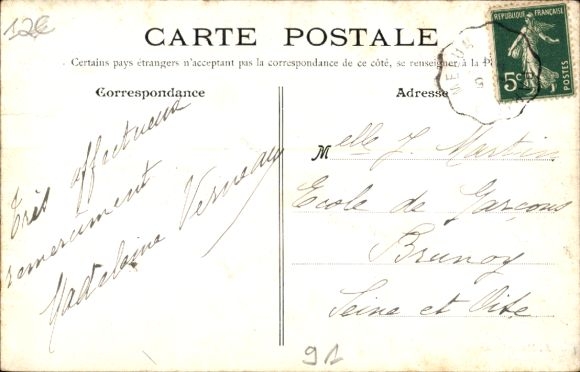 12€
CARTE POSTALE
Certains pays étrangers n'acceptant pas la correspondance de ce côté, se renseigner à la
Correspondance
Adresse
RÉPUBLIQUE FRANÇAISE
5c
POSTES
MELUN
Très affectueux
remerciment
Madeleine Verneau
Melle J. Martin
Ecole de Garçons
Brunoy
Seine et Oise
91